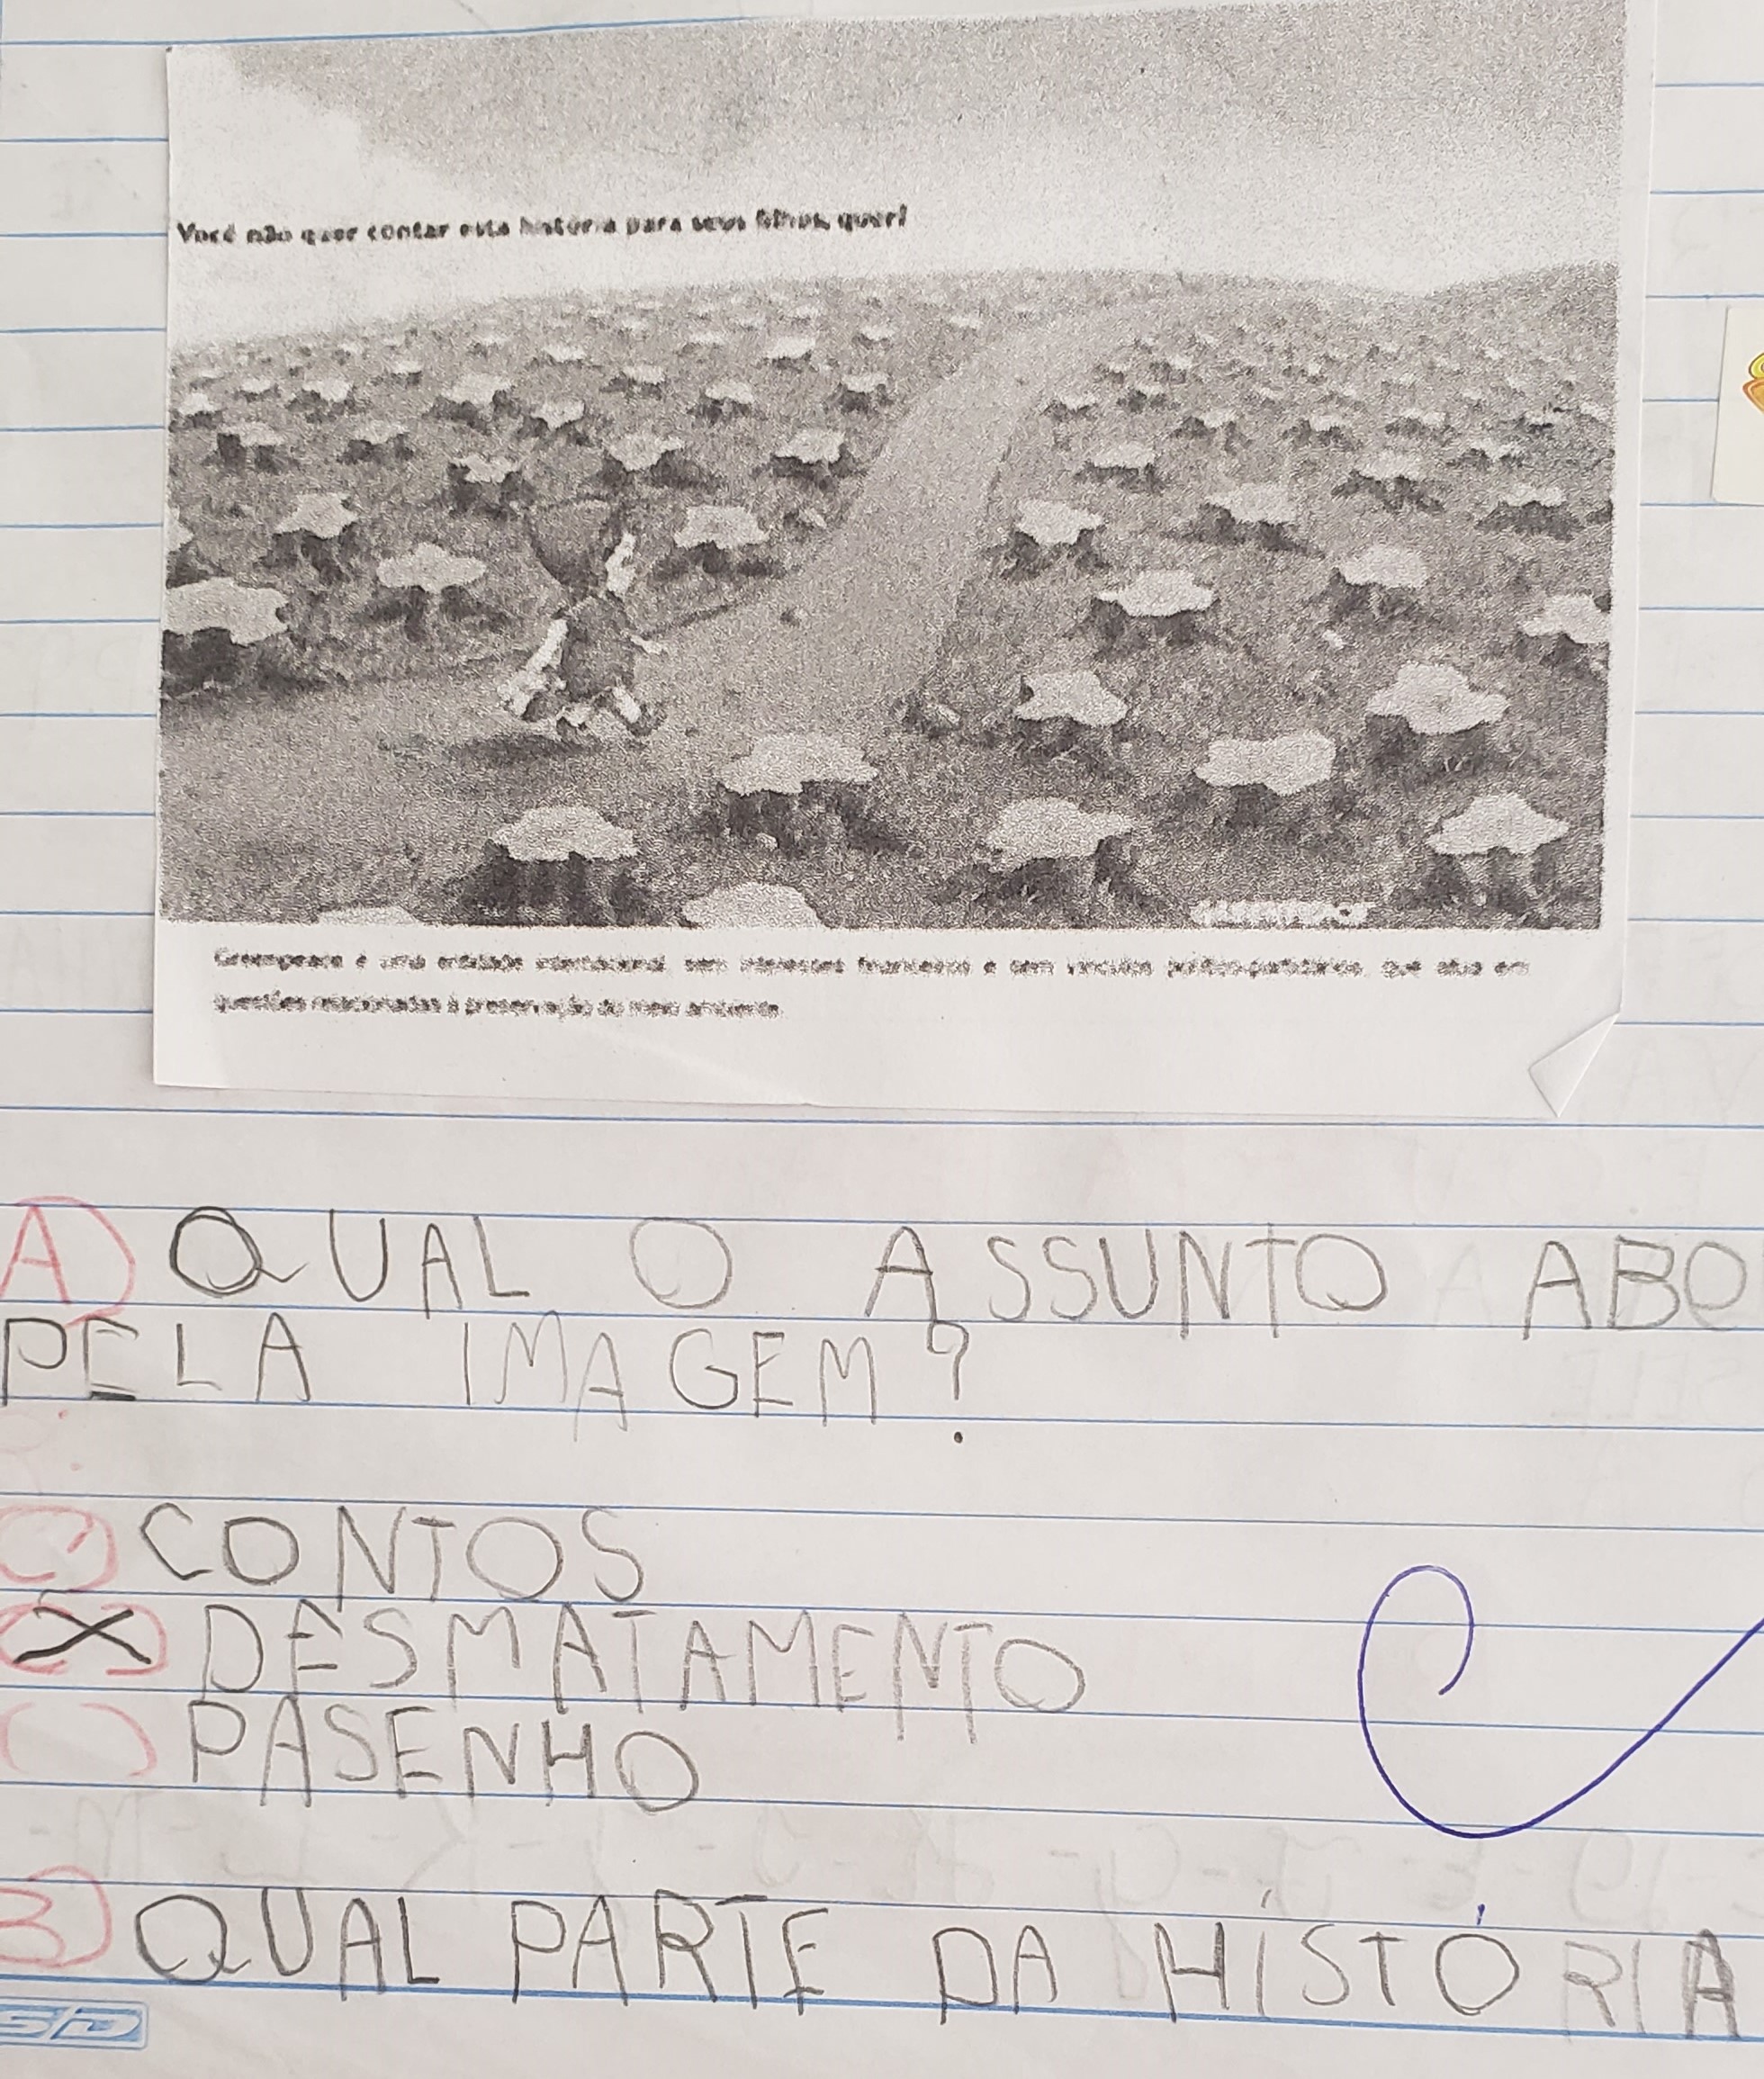 Você não quer contar esta história para seus filhos, quer?
GREENPEACE
Greenpeace é uma entidade internacional, sem interesses financeiros e sem vínculos político-partidários, que atua em
questões relacionadas à preservação do meio ambiente
A) QUAL O ASSUNTO ABO
PELA IMAGEM?
( ) CONTOS
(X) DESMATAMENTO
( ) PASENHO
B) QUAL PARTE DA HÍSTÓRIA
SD